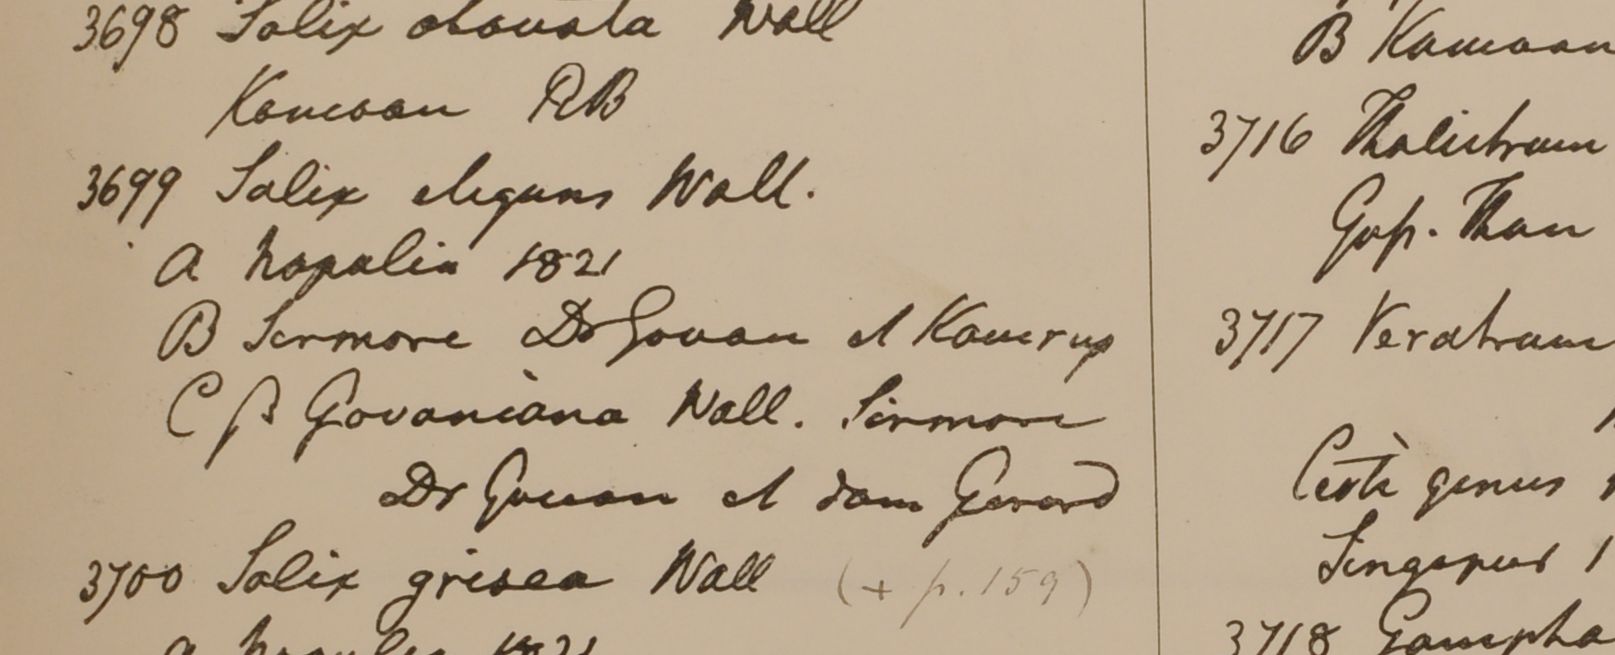 3698 Salix obovata Wall
Kamaon RB
3699 Salix elegans Wall.
a Napalia 1821
B Sermore Dr Govan et Kamrup
C β Govaniana Wall. Sirmore
Dr Govan et dom Gerard
3700 Salix grisea Wall (+ p. 159)
a 1821
B Kamaon
3716 Thalictrum
Gosp. Than
3717 Veratrum
Certè genus
Singapur 1
3718 Gompha